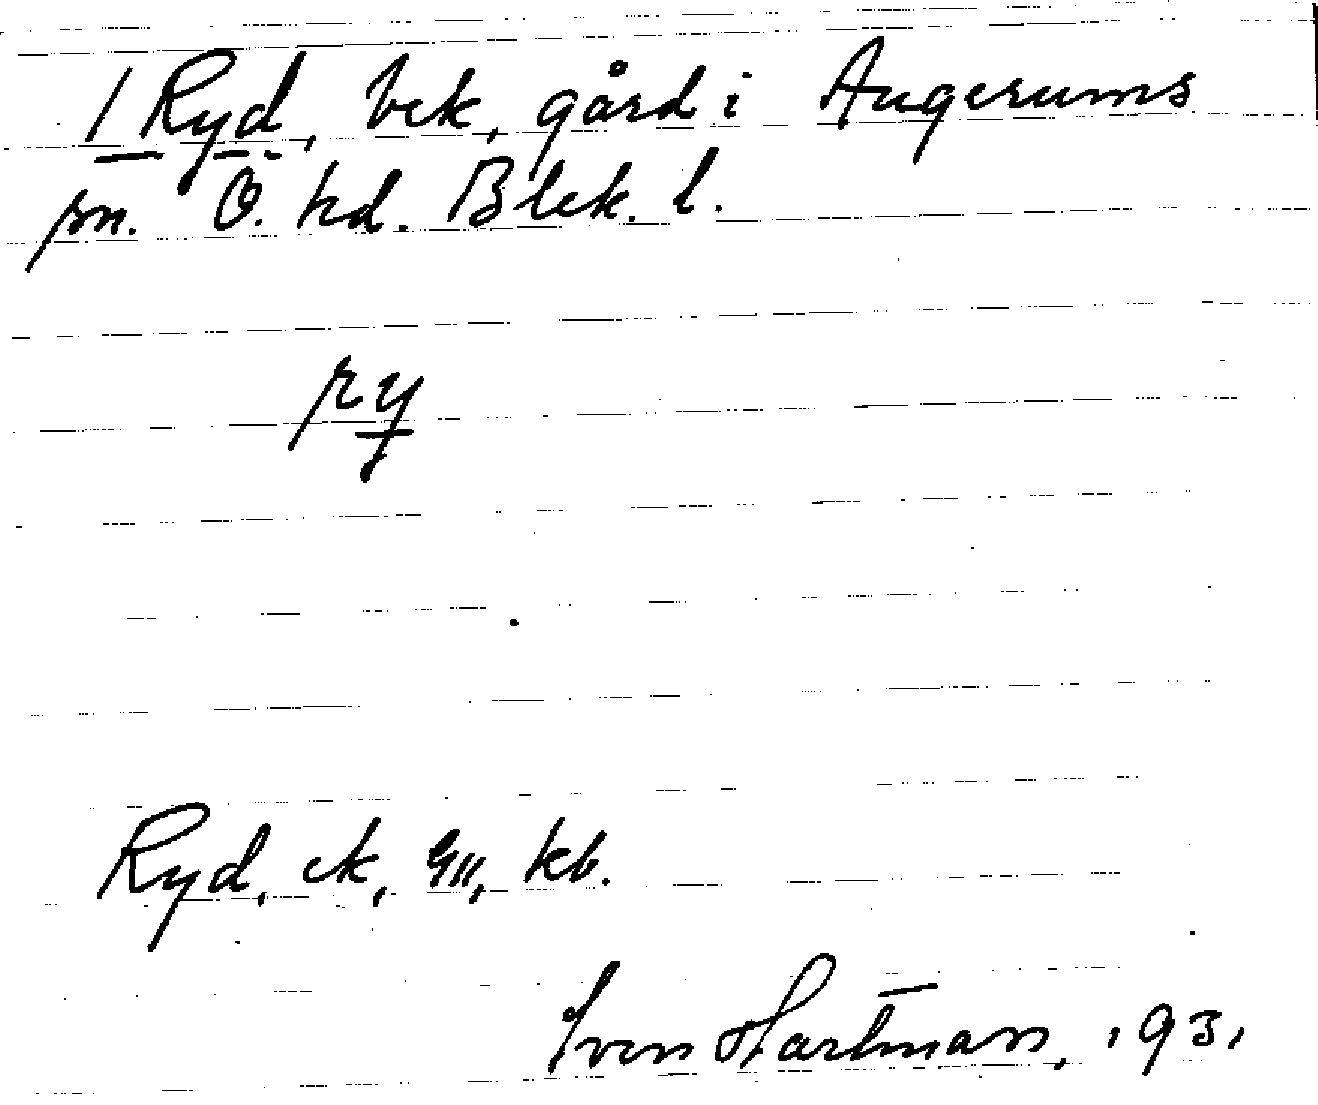 1 Ryd, bek, gård i Augerums
sn. Ö. hd. Blek. l.
ry
Ryd, ek, GII, kb.
Sven Hartman, 1931